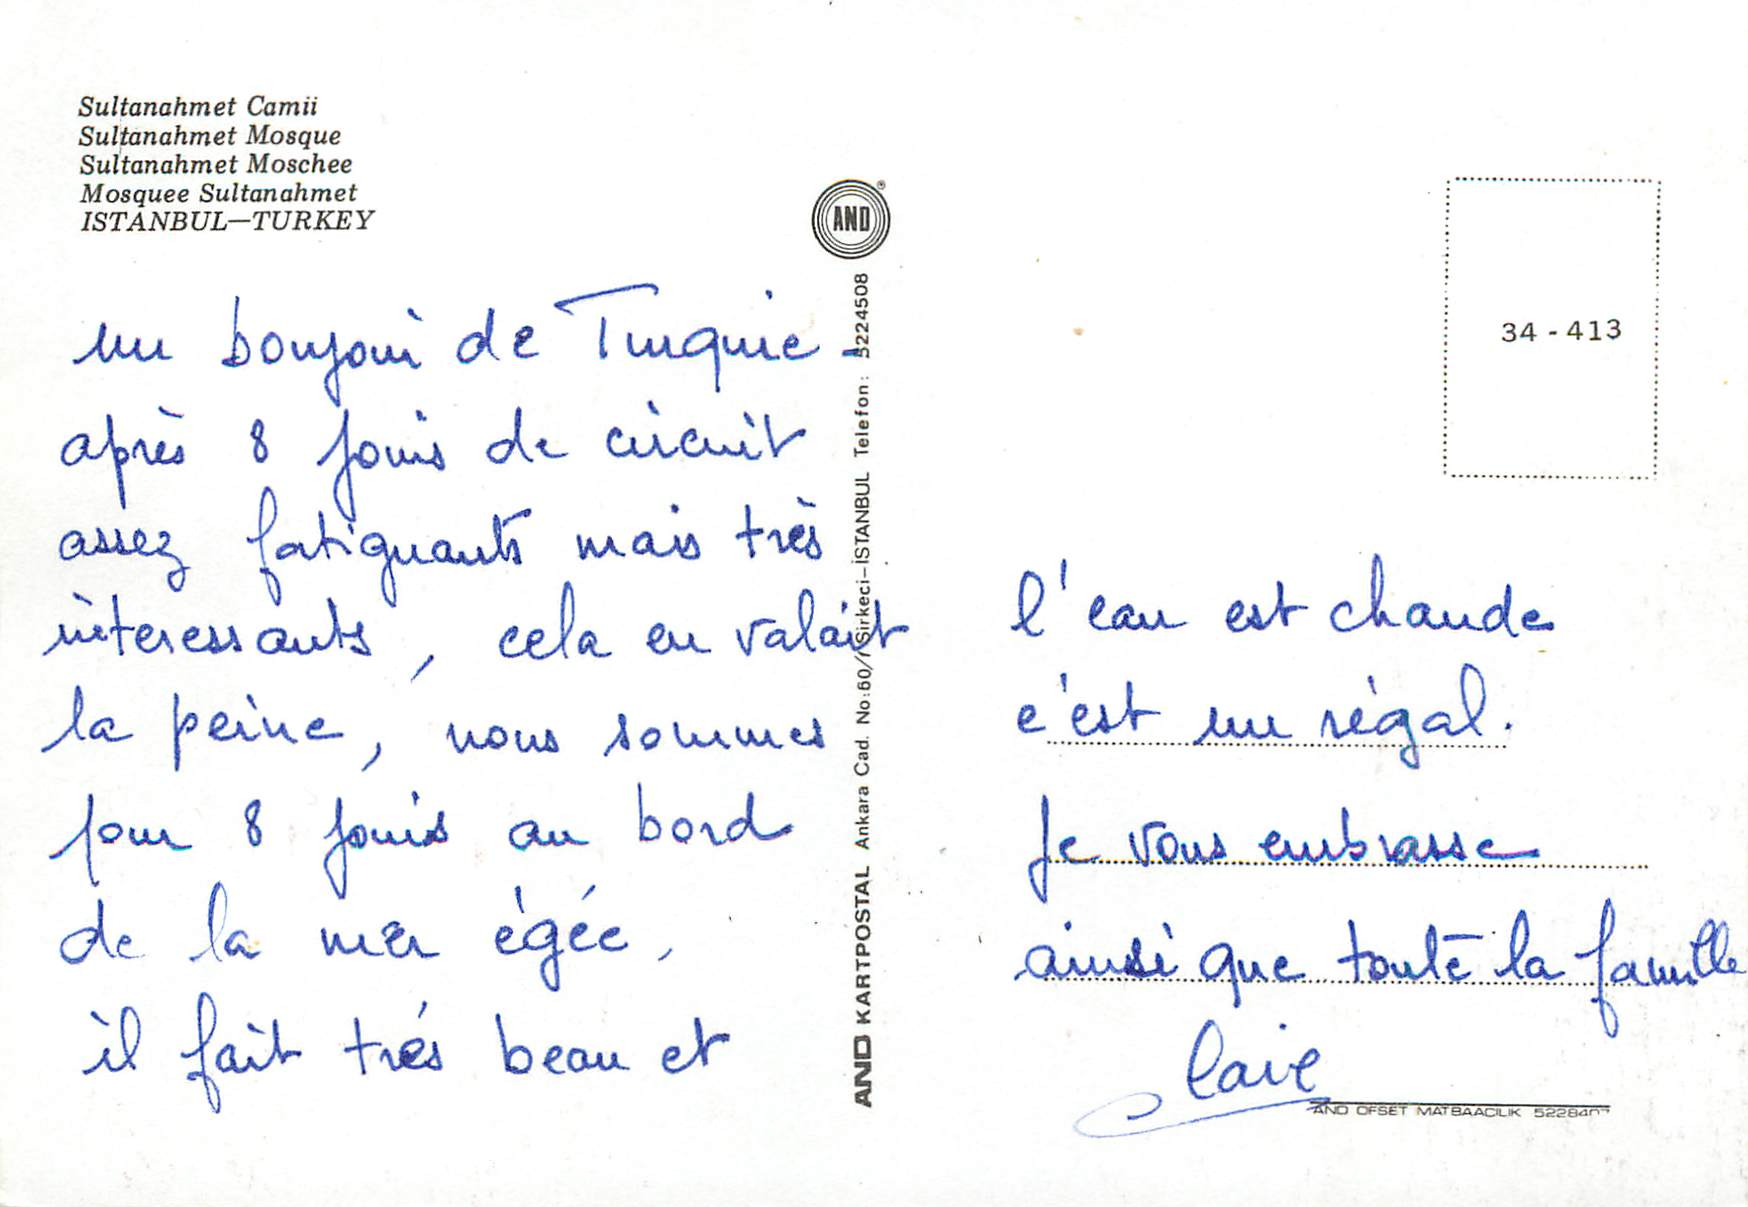 Sultanahmet Camii
Sultanahmet Mosque
Sultanahmet Moschee
Mosquee Sultanahmet
ISTANBUL—TURKEY
un bonjour de Turquie -
après 8 jours de circuit
assez fatiguants mais très
interessants, cela en valait
la peine, nous sommes
pour 8 jours au bord
de la mer égée,
il fait trés beau et
AND
AND KARTPOSTAL Ankara Cad. No:60/1 Sirkeci-İSTANBUL Telefon: 5224508
34 - 413
l'eau est chaude
c'est un régal.
Je vous embrasse
ainsi que toute la famille
Claire
AND OFSET MATBAACILIK